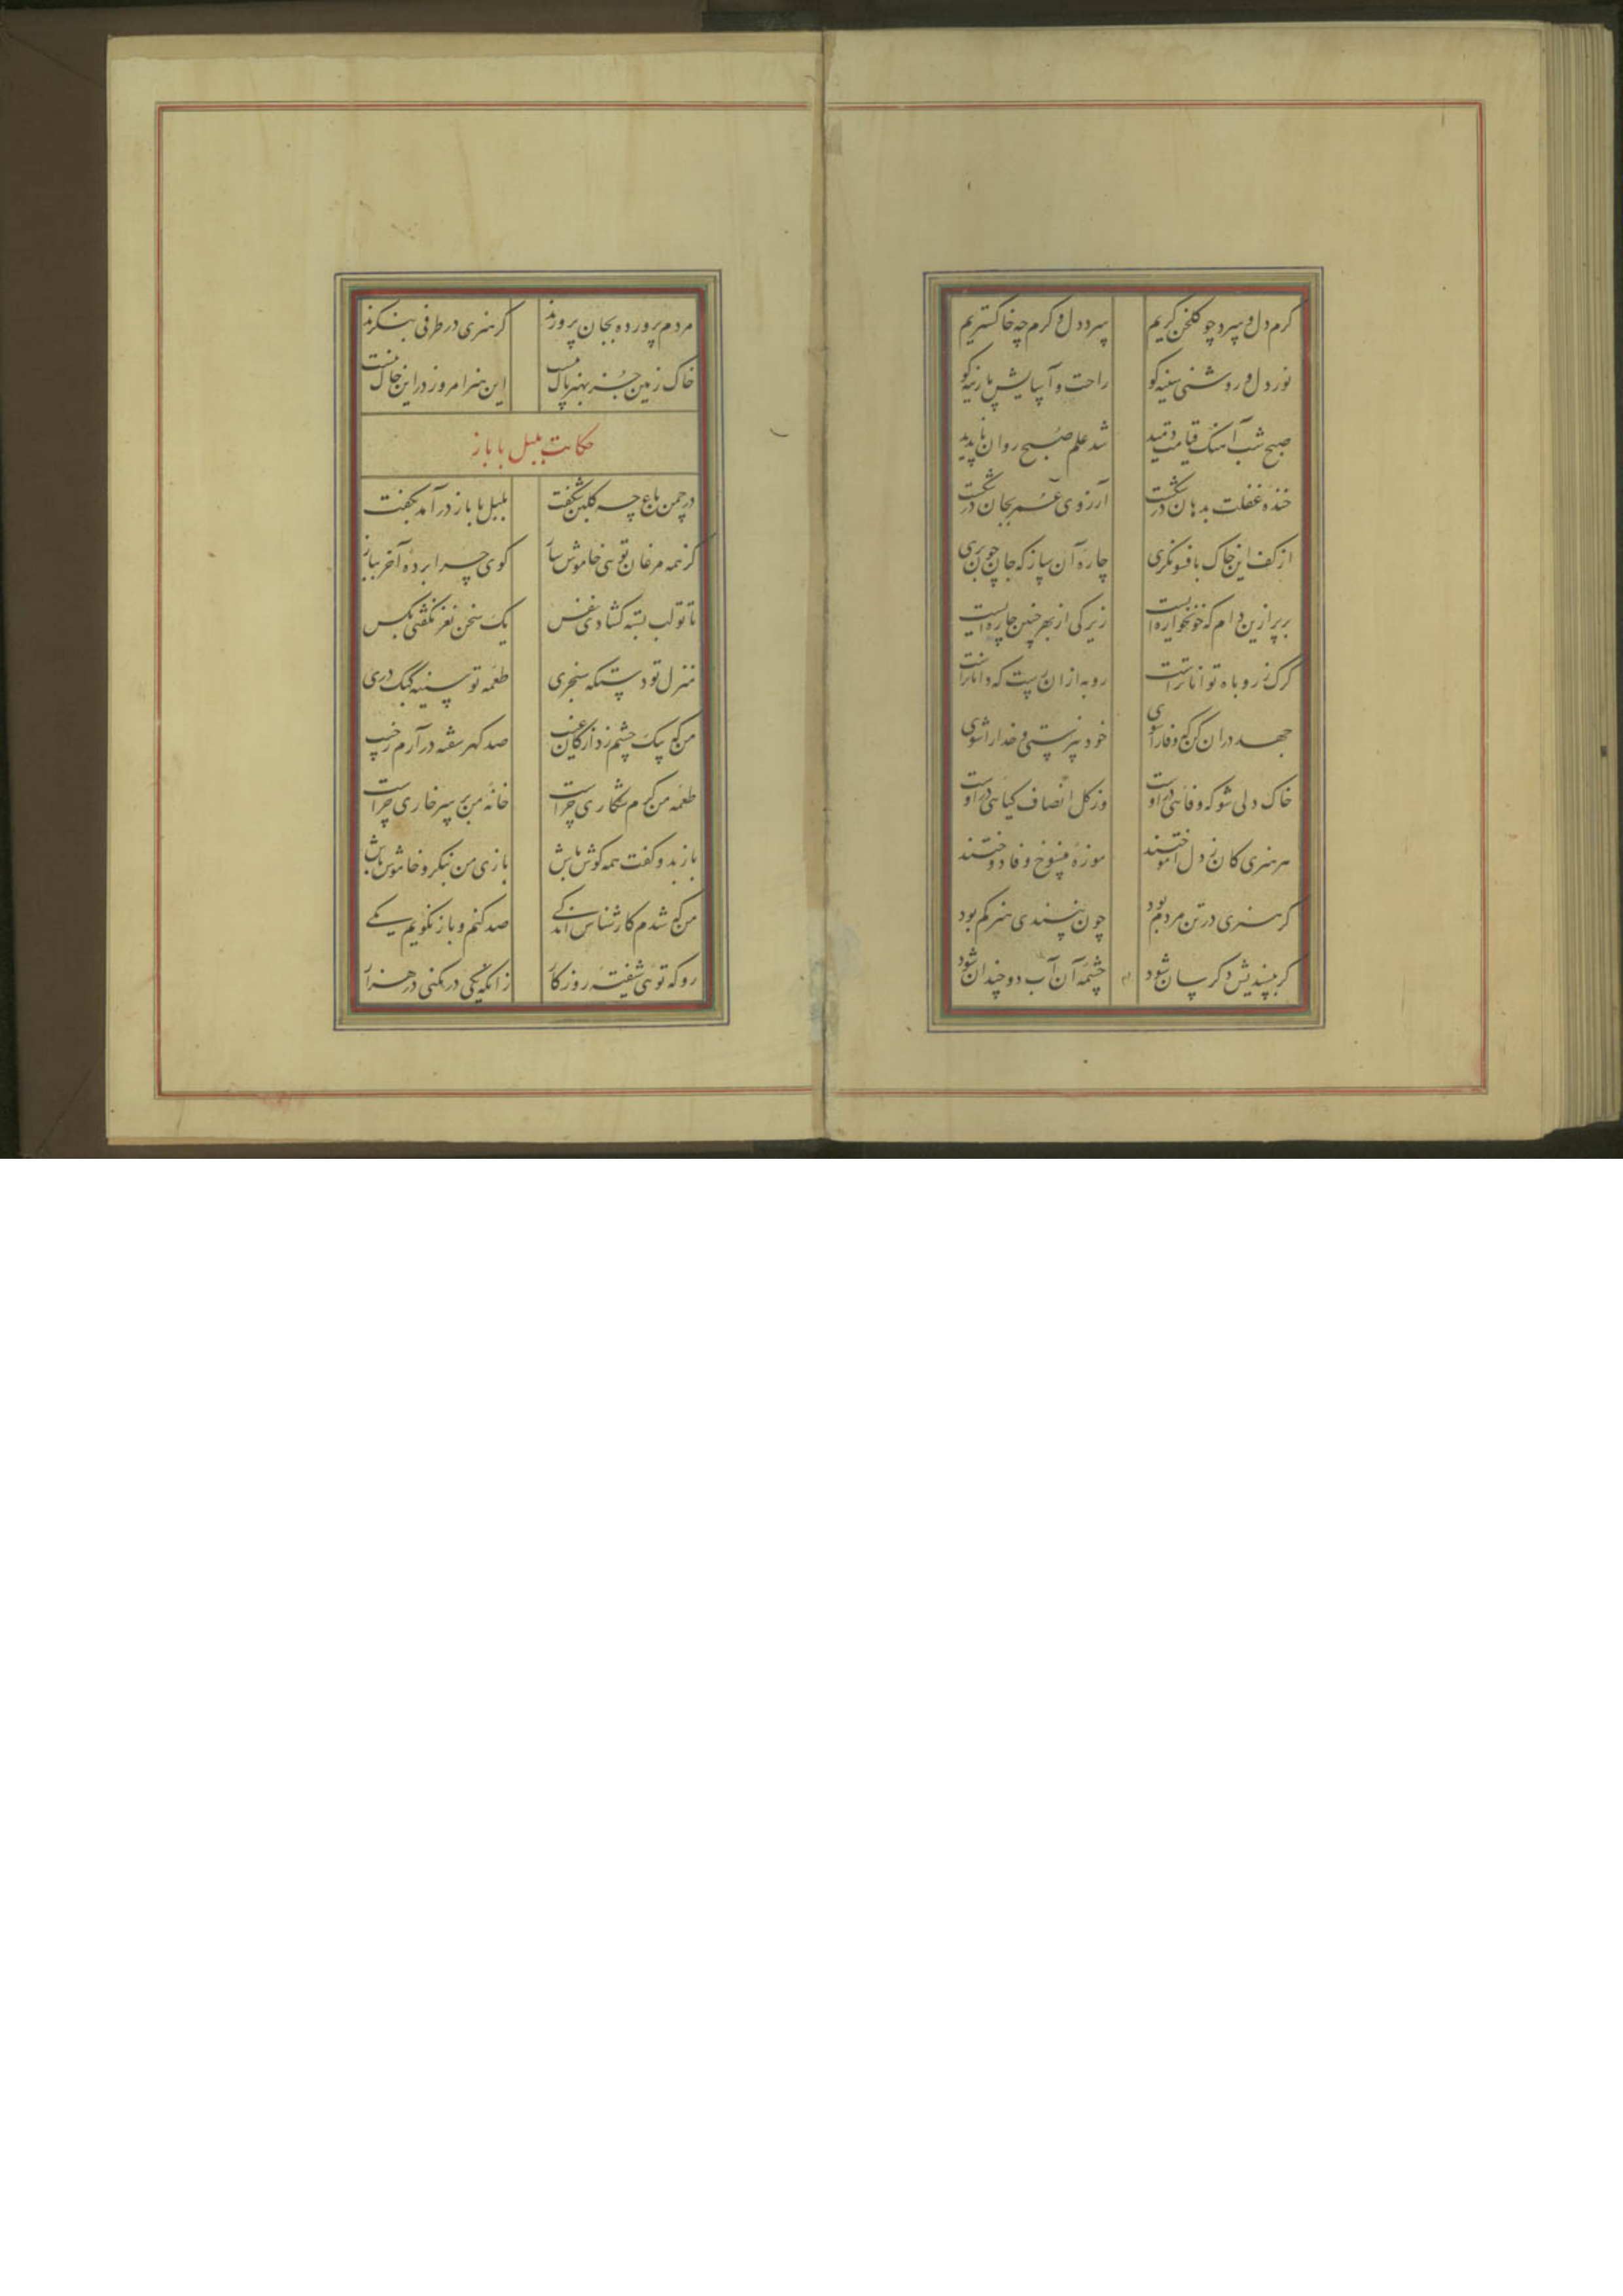 کرم دل و سرد چو کلخن کریم سرد دل و کرم چه خاکستریم
نور دل و روشنی سینه کو راحت و آسایش پارینه کو
صبح شب آهنک قیامت دمید شد علم صبح روان ناپدید
خنده غفلت بدهان در شکست آرزوی عمر بجان در شکست
از کف این خاک بافسونکری چاره آن ساز که جان چون بری
بر پر ازین دام که خونخواره ایست زیرکی از بهر چنین چاره ایست
کرک ز روباه تواناتراست روبه ازان رست که داناتراست
جهد دران کن که وفا را شوی خود نپرستی و خدا را شوی
خاک دلی شو که وفائی دروست وز کل انصاف کیائی دروست
هر هنری کان ز دل آموختند موزه منسوخ وفا دوختند
کر هنری در تن مردم بود چون نپسندی هنرکم بود
کر بپسندیش دکر سان شود چشمه آن آب دو چندان شود
مردم پرورده بجان پرورند کر هنری در طرفی بنکرند
خاک زمین جز بهنر پاک نیست این هنر امروز در این خاک نیست
حکایت بلبل با باز
در چمن باغ چه کلبن شکفت بلبل با باز در آمد بکفت
کز همه مرغان توئی خاموش سار کوی چرا برده آخر بیار
تا تو لب بسته کشادی نفس یک سخن نغز نکفتی بکس
منزل تو دستکه سنجری طعمه تو سینه کبک دری
من که بیک چشم زد از کان غیب صد کهر سفته در آرم ز جیب
طعمه من کرم شکاری چراست خانه من بر سر خاری چراست
باز بدو کفت همه کوش باش بازی من بنکر و خاموش باش
من که شدم کارشناس اندکی صد کنم و باز نکویم یکی
رو که توئی شیفته روزکار زانکه یکی در نکنی در هزار